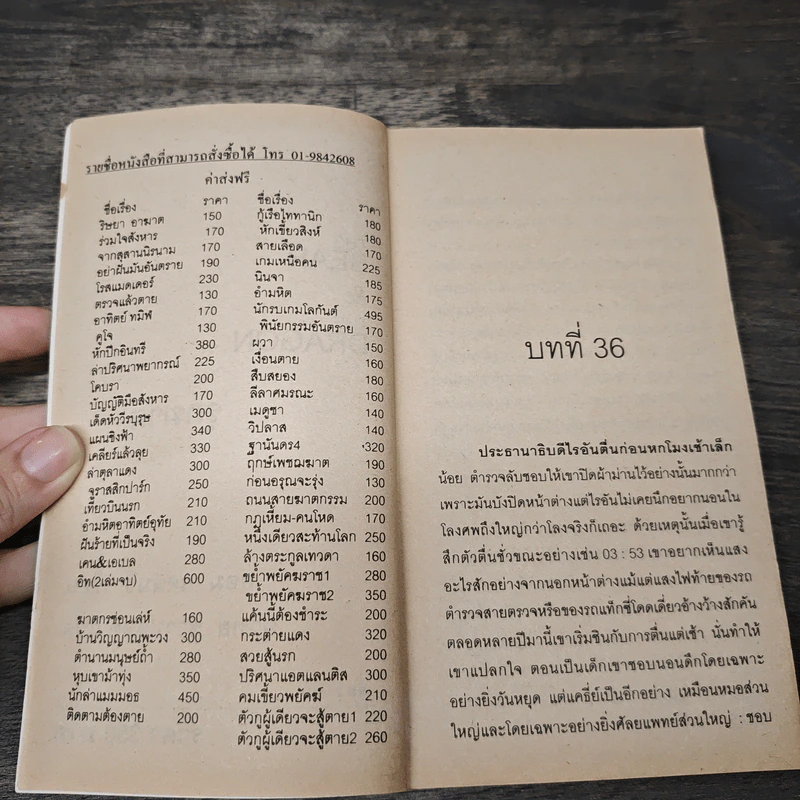 รายชื่อหนังสือที่สามารถสั่งซื้อได้ โทร 01-9842608
ค่าส่งฟรี
ชื่อเรื่อง ราคา
ริษยา อาฆาต 150
ร่วมใจสังหาร 170
จากสุสานนิรนาม 170
อย่าฝันมันอันตราย 190
โรสแมดเดอร์ 230
ตรวจแล้วตาย 130
อาทิตย์ ทมิฬ 170
คูโจ 130
หักปีกอินทรี 380
ล่าปริศนาพยากรณ์ 225
โคบรา 200
บัญญัติมือสังหาร 170
เด็ดหัววีรบุรุษ 300
แผนชิงฟ้า 340
เคลียร์แล้วลุย 330
ล่าตุลาแดง 300
จูราสสิกปาร์ก 250
เที่ยวบินนรก 210
อำมหิตอาทิตย์อุทัย 210
ฝันร้ายที่เป็นจริง 190
เคน&เอเบล 280
อิท(2เล่มจบ) 600
ฆาตกรซ่อนเล่ห์ 160
บ้านวิญญาณพะวง 300
ตำนานมนุษย์ถ้ำ 280
หุบเขาม้าทุ่ง 350
นักล่าแมมมอธ 450
ติดตามต้องตาย 200
ชื่อเรื่อง ราคา
กู้เรือไททานิก 180
หักเขี้ยวสิงห์ 180
สายเลือด 170
เกมเหนือคน 225
นินจา 185
อำมหิต 175
นักรบเกมโลกันต์ 495
พินัยกรรมอันตราย 170
ผวา 150
เงื่อนตาย 160
สืบสยอง 180
ลีลาศมรณะ 160
เมดูซา 140
วิปลาส 140
ฐานันดร4 320
ฤกษ์เพชฌฆาต 190
ก่อนอรุณจะรุ่ง 130
ถนนสายฆาตกรรม 200
กฎเหี้ยม-คนโหด 170
หนึ่งเดียวสะท้านโลก 250
ล้างตระกูลเทวดา 160
ขย้ำพยัคฆราช1 280
ขย้ำพยัคฆราช2 350
แค้นนี้ต้องชำระ 200
กระต่ายแดง 320
สวยสู้นรก 200
ปริศนาแอตแลนติส 300
คมเขี้ยวพยัคฆ์ 210
ตัวกูผู้เดียวจะสู้ตาย1 220
ตัวกูผู้เดียวจะสู้ตาย2 260
บทที่ 36
ประธานาธิบดีไรอันตื่นก่อนหกโมงเช้าเล็ก
น้อย ตำรวจลับชอบให้เขาปิดผ้าม่านไว้อย่างนั้นมากกว่า
เพราะมันบังปิดหน้าต่างแต่ไรอันไม่เคยนึกอยากนอนใน
โลงศพถึงใหญ่กว่าโลงจริงก็เถอะ ด้วยเหตุนั้นเมื่อเขารู้
สึกตัวตื่นชั่วขณะอย่างเช่น 03 : 53 เขาอยากเห็นแสง
อะไรสักอย่างจากนอกหน้าต่างแม้แต่แสงไฟท้ายของรถ
ตำรวจสายตรวจหรือของรถแท็กซี่โดดเดี่ยวอ้างว้างสักคัน
ตลอดหลายปีมานี้เขาเริ่มชินกับการตื่นแต่เช้า นั่นทำให้
เขาแปลกใจ ตอนเป็นเด็กเขาชอบนอนดึกโดยเฉพาะ
อย่างยิ่งวันหยุด แต่แคธี่ย์เป็นอีกอย่าง เหมือนหมอส่วน
ใหญ่และโดยเฉพาะอย่างยิ่งศัลยแพทย์ส่วนใหญ่ : ชอบ